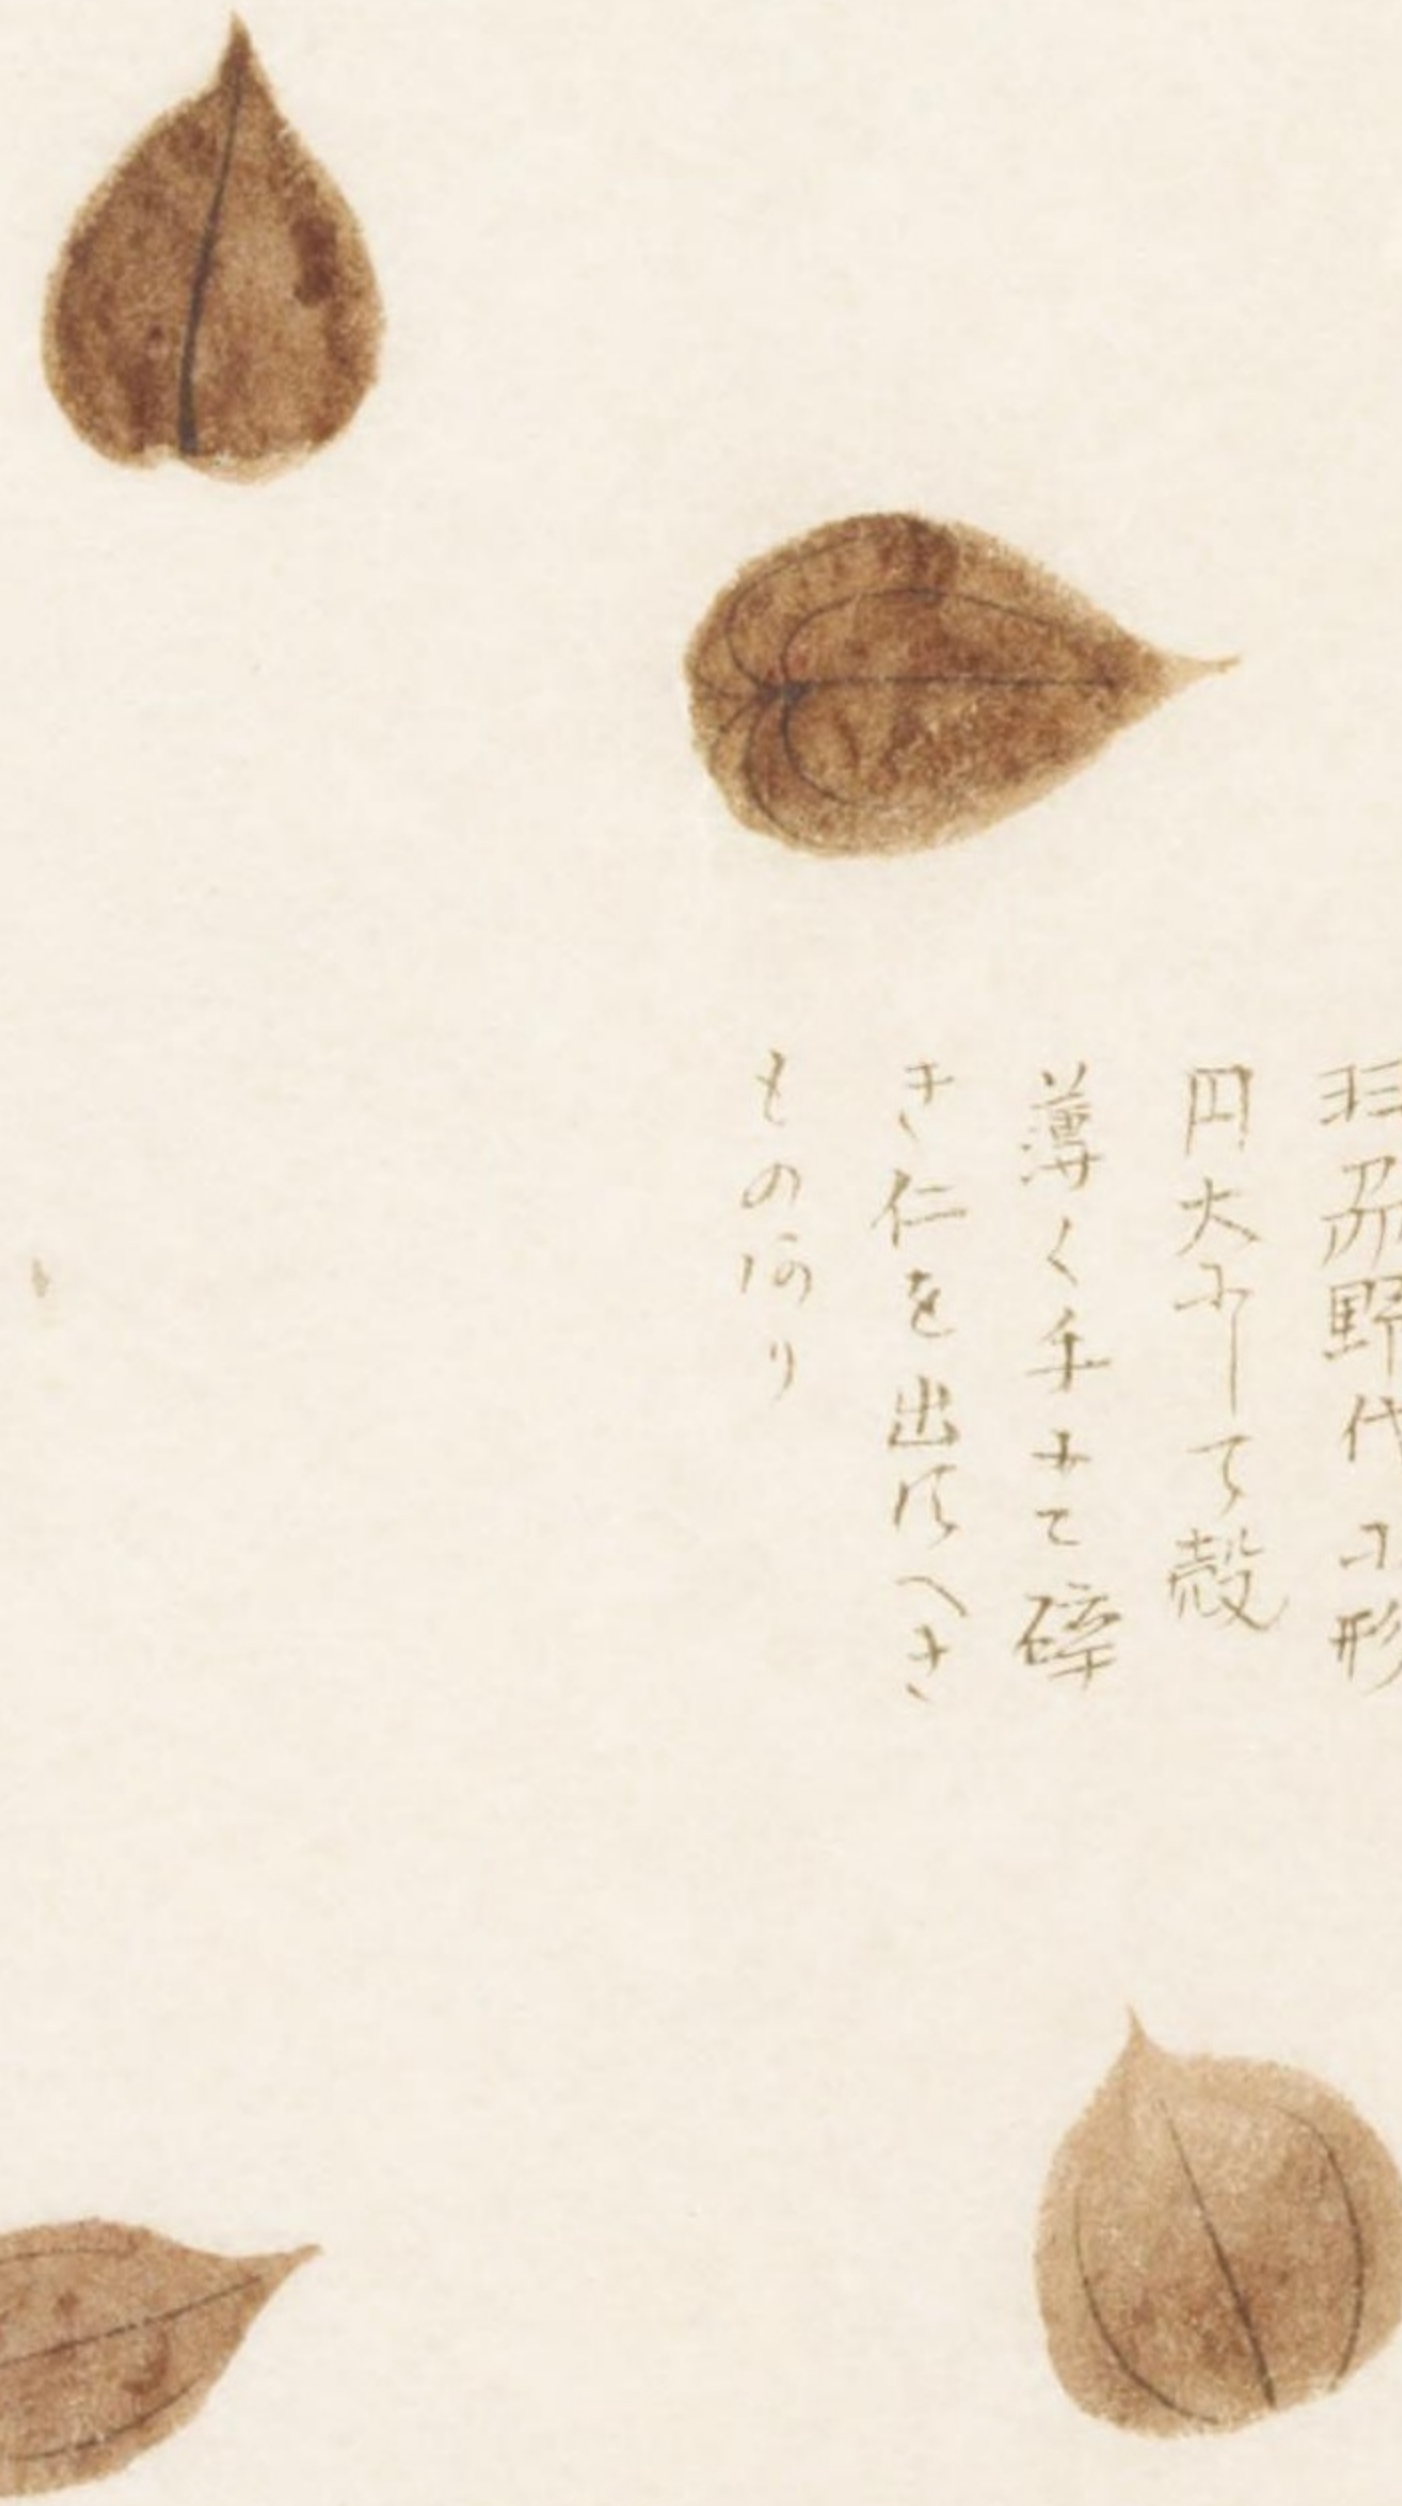 羽刕野代形
円大にして殻
薄く手にて碎
き仁を出すへき
ものあり